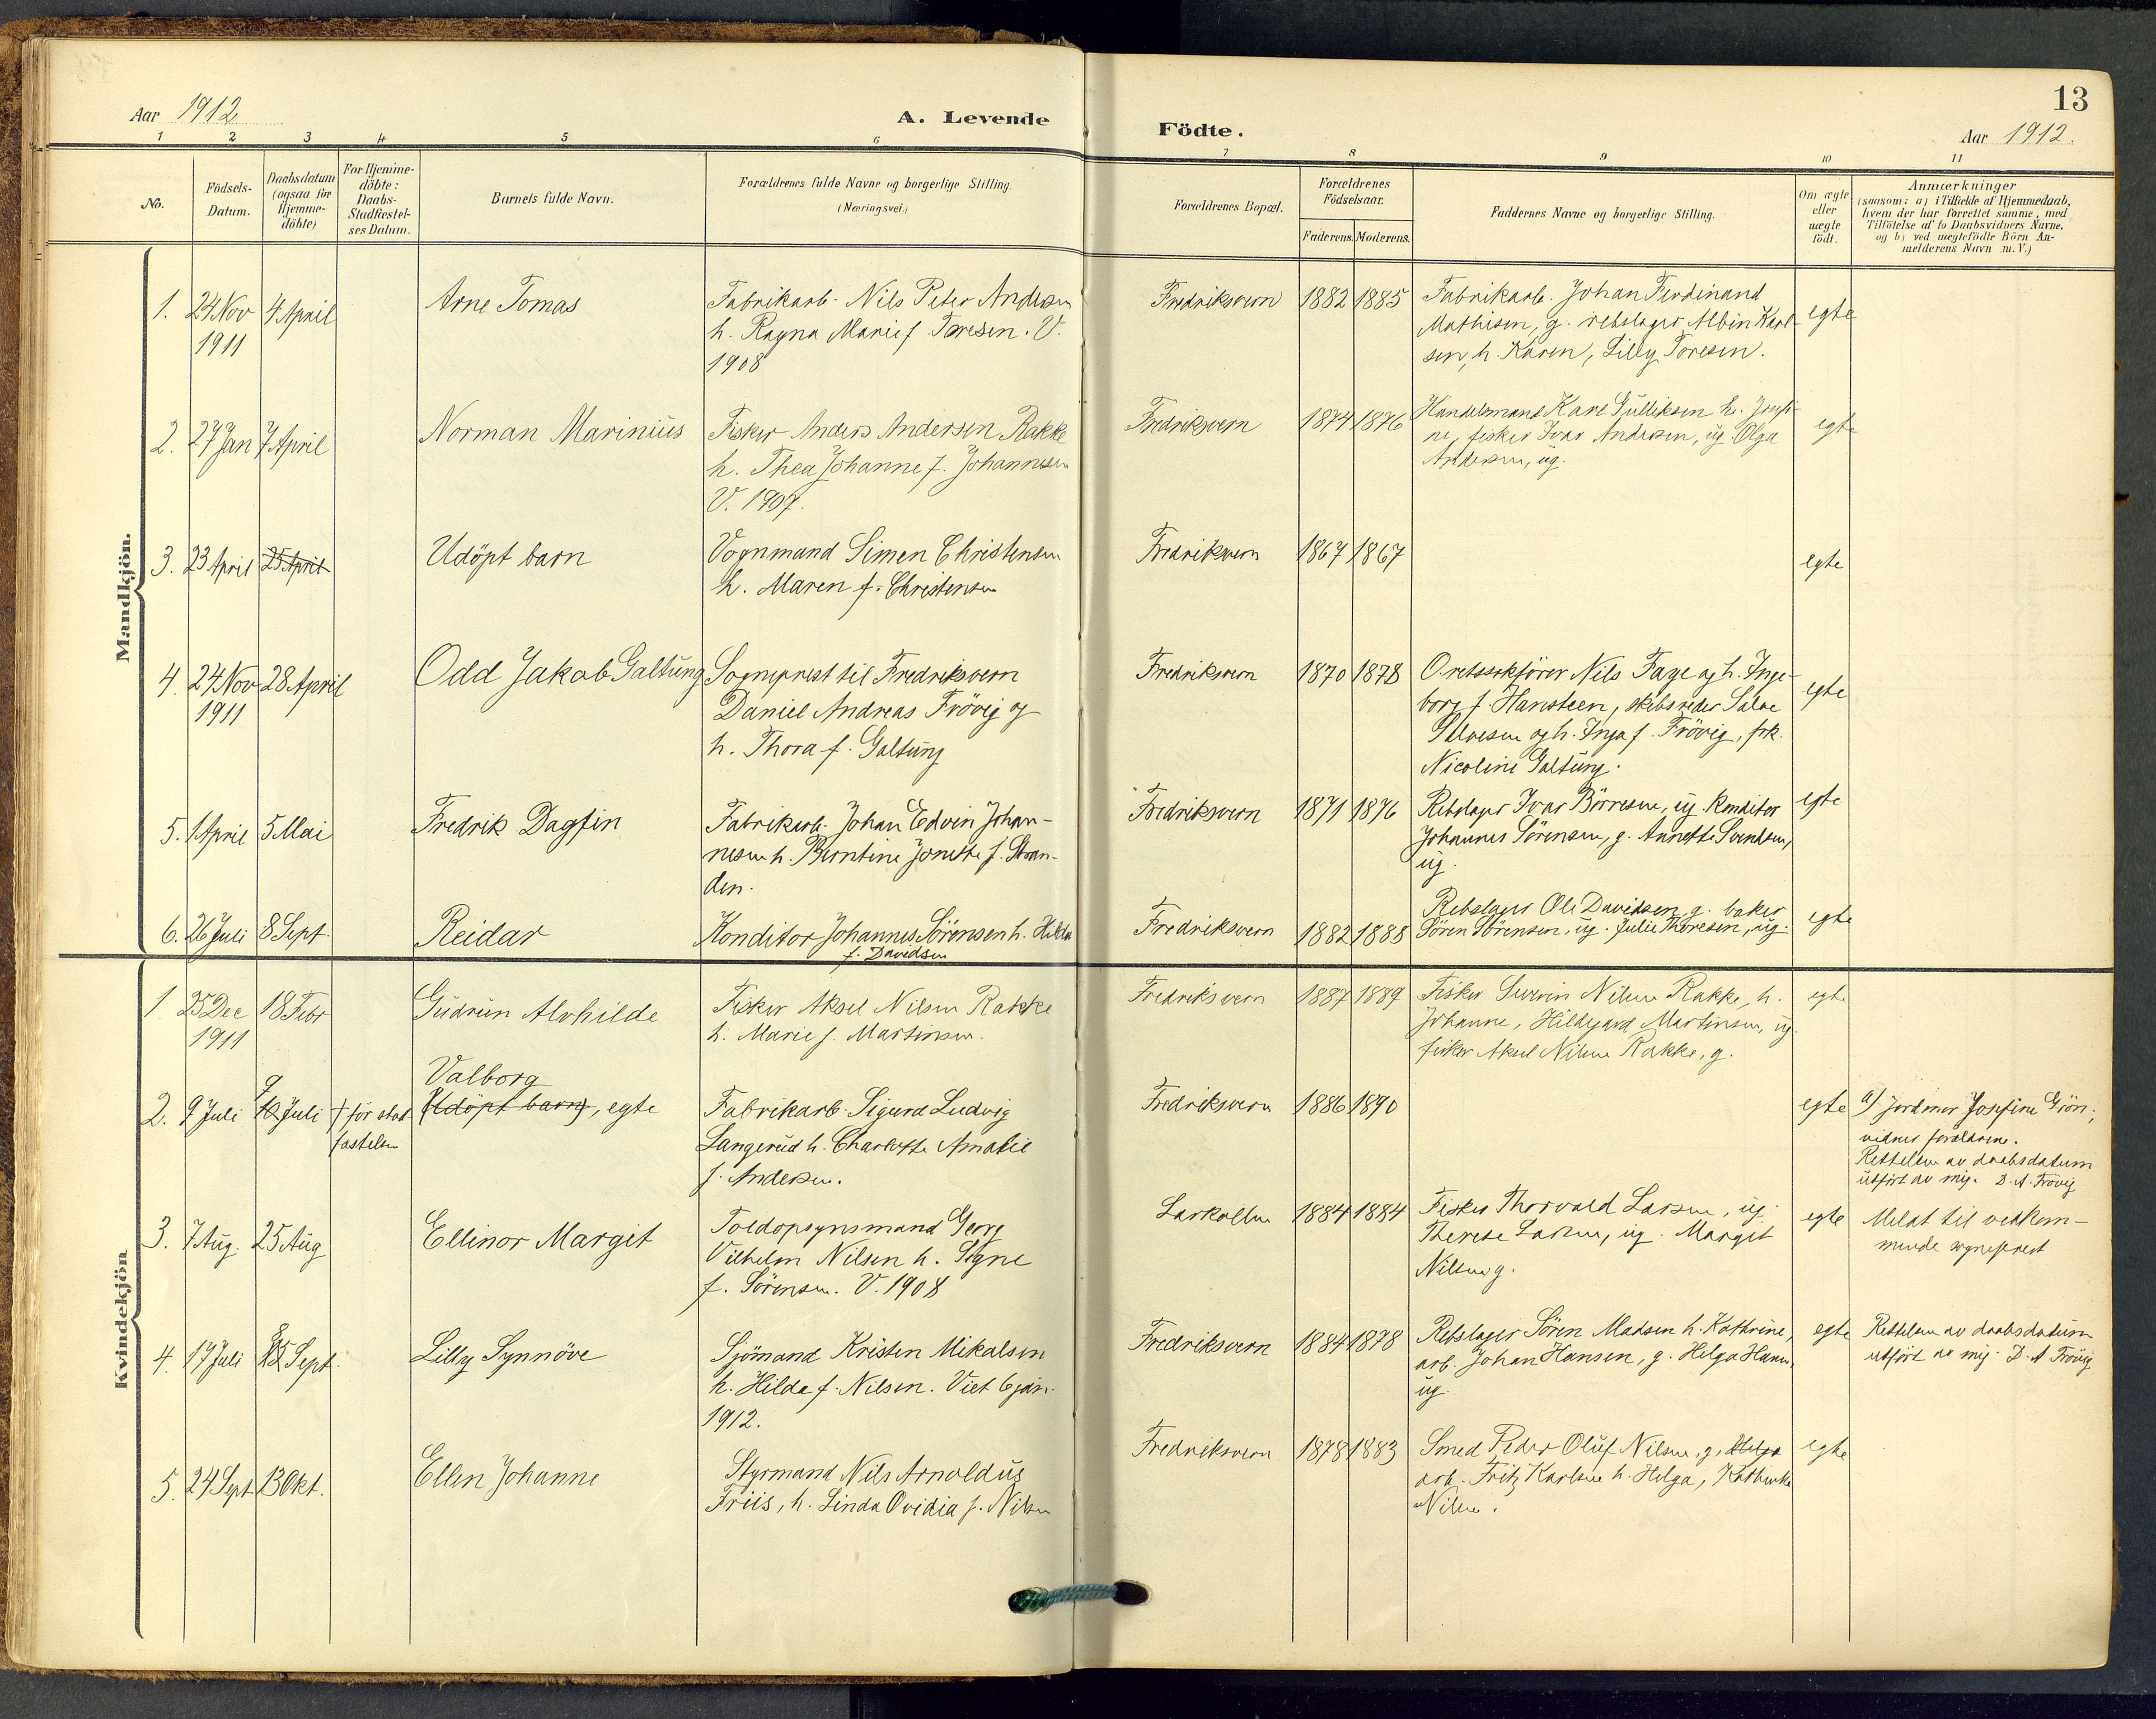 13
Aar 1912
A. Levende Födte.
Aar 1912.
1 2 3 4 5 6 7 8 9 10 11
No.
Födsels-
Datum.
Daabsdatum
(ogsaa for
Hjemme-
döbte)
For Hjemme-
döbte:
Daabs-
Stadfæstel-
ses Datum.
Barnets fulde Navn.
Forældrenes fulde Navne og borgerlige Stilling.
(Næringsvei.)
Forældrenes Bopæl.
Forældrenes
Födselsaar.
Faderens. Moderens.
Faddernes Navne og borgerlige Stilling.
Om ægte
eller
uægte
födt.
Anmærkninger
(saasom: a) i Tilfælde af Hjemmedaab,
hvem der har forrettet samme, med
Tilföielse af to Daabsvidners Navne,
og b) ved uægtefödte Börn An-
melderens Navn m. V.)
Mandkjön.
1. 24 Nov 1911
4 April
Arne Tomas
Fabrikarb. Nils Peter Andersen
h. Ragna Marie f. Toresen. V.
1908
Fredriksvern
1882 1885
Fabrikarb. Johan Ferdinand
Mathisen, g. rebslager Albin Karl-
sen, h. Karen, Lilly Toresen.
egte
2. 27 Jan 7 April
Norman Marinius
Fisker Anders Andersen Rakke
h. Thea Johanne f. Johannesen
V. 1907.
Fredriksvern
1874 1876
Handelsmand Karl Gulliksen h. Josefi-
ne, fisker Ivar Andersen, ug. Olga
Andersen, ug.
egte
3. 23 April 25 April
Udöpt barn
Vognmand Simen Christensen
h. Maren f. Christensen
Fredriksvern
1867 1867
egte
4. 24 Nov 1911
28 April
Odd Jakob Galtung
Sogneprest til Fredriksvern
Daniel Andreas Frövig og
h. Thora f. Galtung
Fredriksvern
1870 1878
O.retssakförer Nils Faye og h. Inge-
borg f. Hansteen, skibsreder Salve
Salvesen og h. Inga f. Frövig, frk.
Nicoline Galtung.
egte
5. 1 April 5 Mai
Fredrik Dagfin
Fabrikarb. Johan Edvin Johan-
nesen h. Berntine Jonette f. Stran-
den.
Fredriksvern
1871 1876
Rebslager Ivar Börresen, ug. Konditor
Johannes Sörensen, g. Annette Svendsen,
ug.
egte
6. 26 Juli 8 Sept.
Reidar
Konditor Johannes Sörensen h. Hilda
f. Davidsen
Fredriksvern
1882 1888
Rebslager Ole Davidsen, g. baker
Sören Sörensen, ug. Julie Thoresen, ug.
egte
Kvindekjön
1. 25 Dec 1911
18 Febr
Gudrun Alvhilde
Fisker Aksel Nilsen Rakke
h. Marie f. Martinsen.
Fredriksvern
1887 1889
Fisker Severin Nilsen Rakke, h.
Johanne, Hildegard Martinsen, ug.
fisker Aksel Nilsen Rakke, g.
egte
2. 9 Juli 9 10 Juli
† för stad
festelsen
Valborg
(Udöpt barn), egte
Fabrikarb. Sigurd Ludvig
Langerud h. Charlotte Amalie
f. Andersen.
Fredriksvern
1886 1890
egte
a) Jordmor Josefine Grön,
vidner forældrene.
Rettelsen av daabsdatum
utfört av mig. D. A. Frövig
3. 7 Aug. 25 Aug
Ellinor Margit
Toldopsynsmand Georg
Vilhelm Nilsen h. Signe
f. Sörensen. V. 1908
Larkollen
1884 1884
Fisker Thorvald Larsen, ug.
Therese Larsen, ug. Margit
Nilsen g.
egte
Melat til vedkom-
mende sogneprest
4. 17 Juli 8 Sept.
Lilly Synnöve
Sjömand Kristen Mikalsen
h. Hilda f. Nilsen. Viet 6 jan.
1912.
Fredriksvern
1884 1878
Rebslager Sören Madsen h. Kathrine,
arb. Johan Hansen, g. Helga Hansen,
ug.
egte
Rettelsen av daabsdatum
utfört av mig. D. A Frövig
5. 24 Sept. 13 Okt.
Ellen Johanne
Styrmand Nils Arnoldus
Friis, h. Linda Ovidia f. Nilsen
Fredriksvern
1878 1883
Smed Peder Oluf Nilsen, g, Helga
arb. Fritz Karlsen h. Helga, Kathinka
Nilsen.
egte